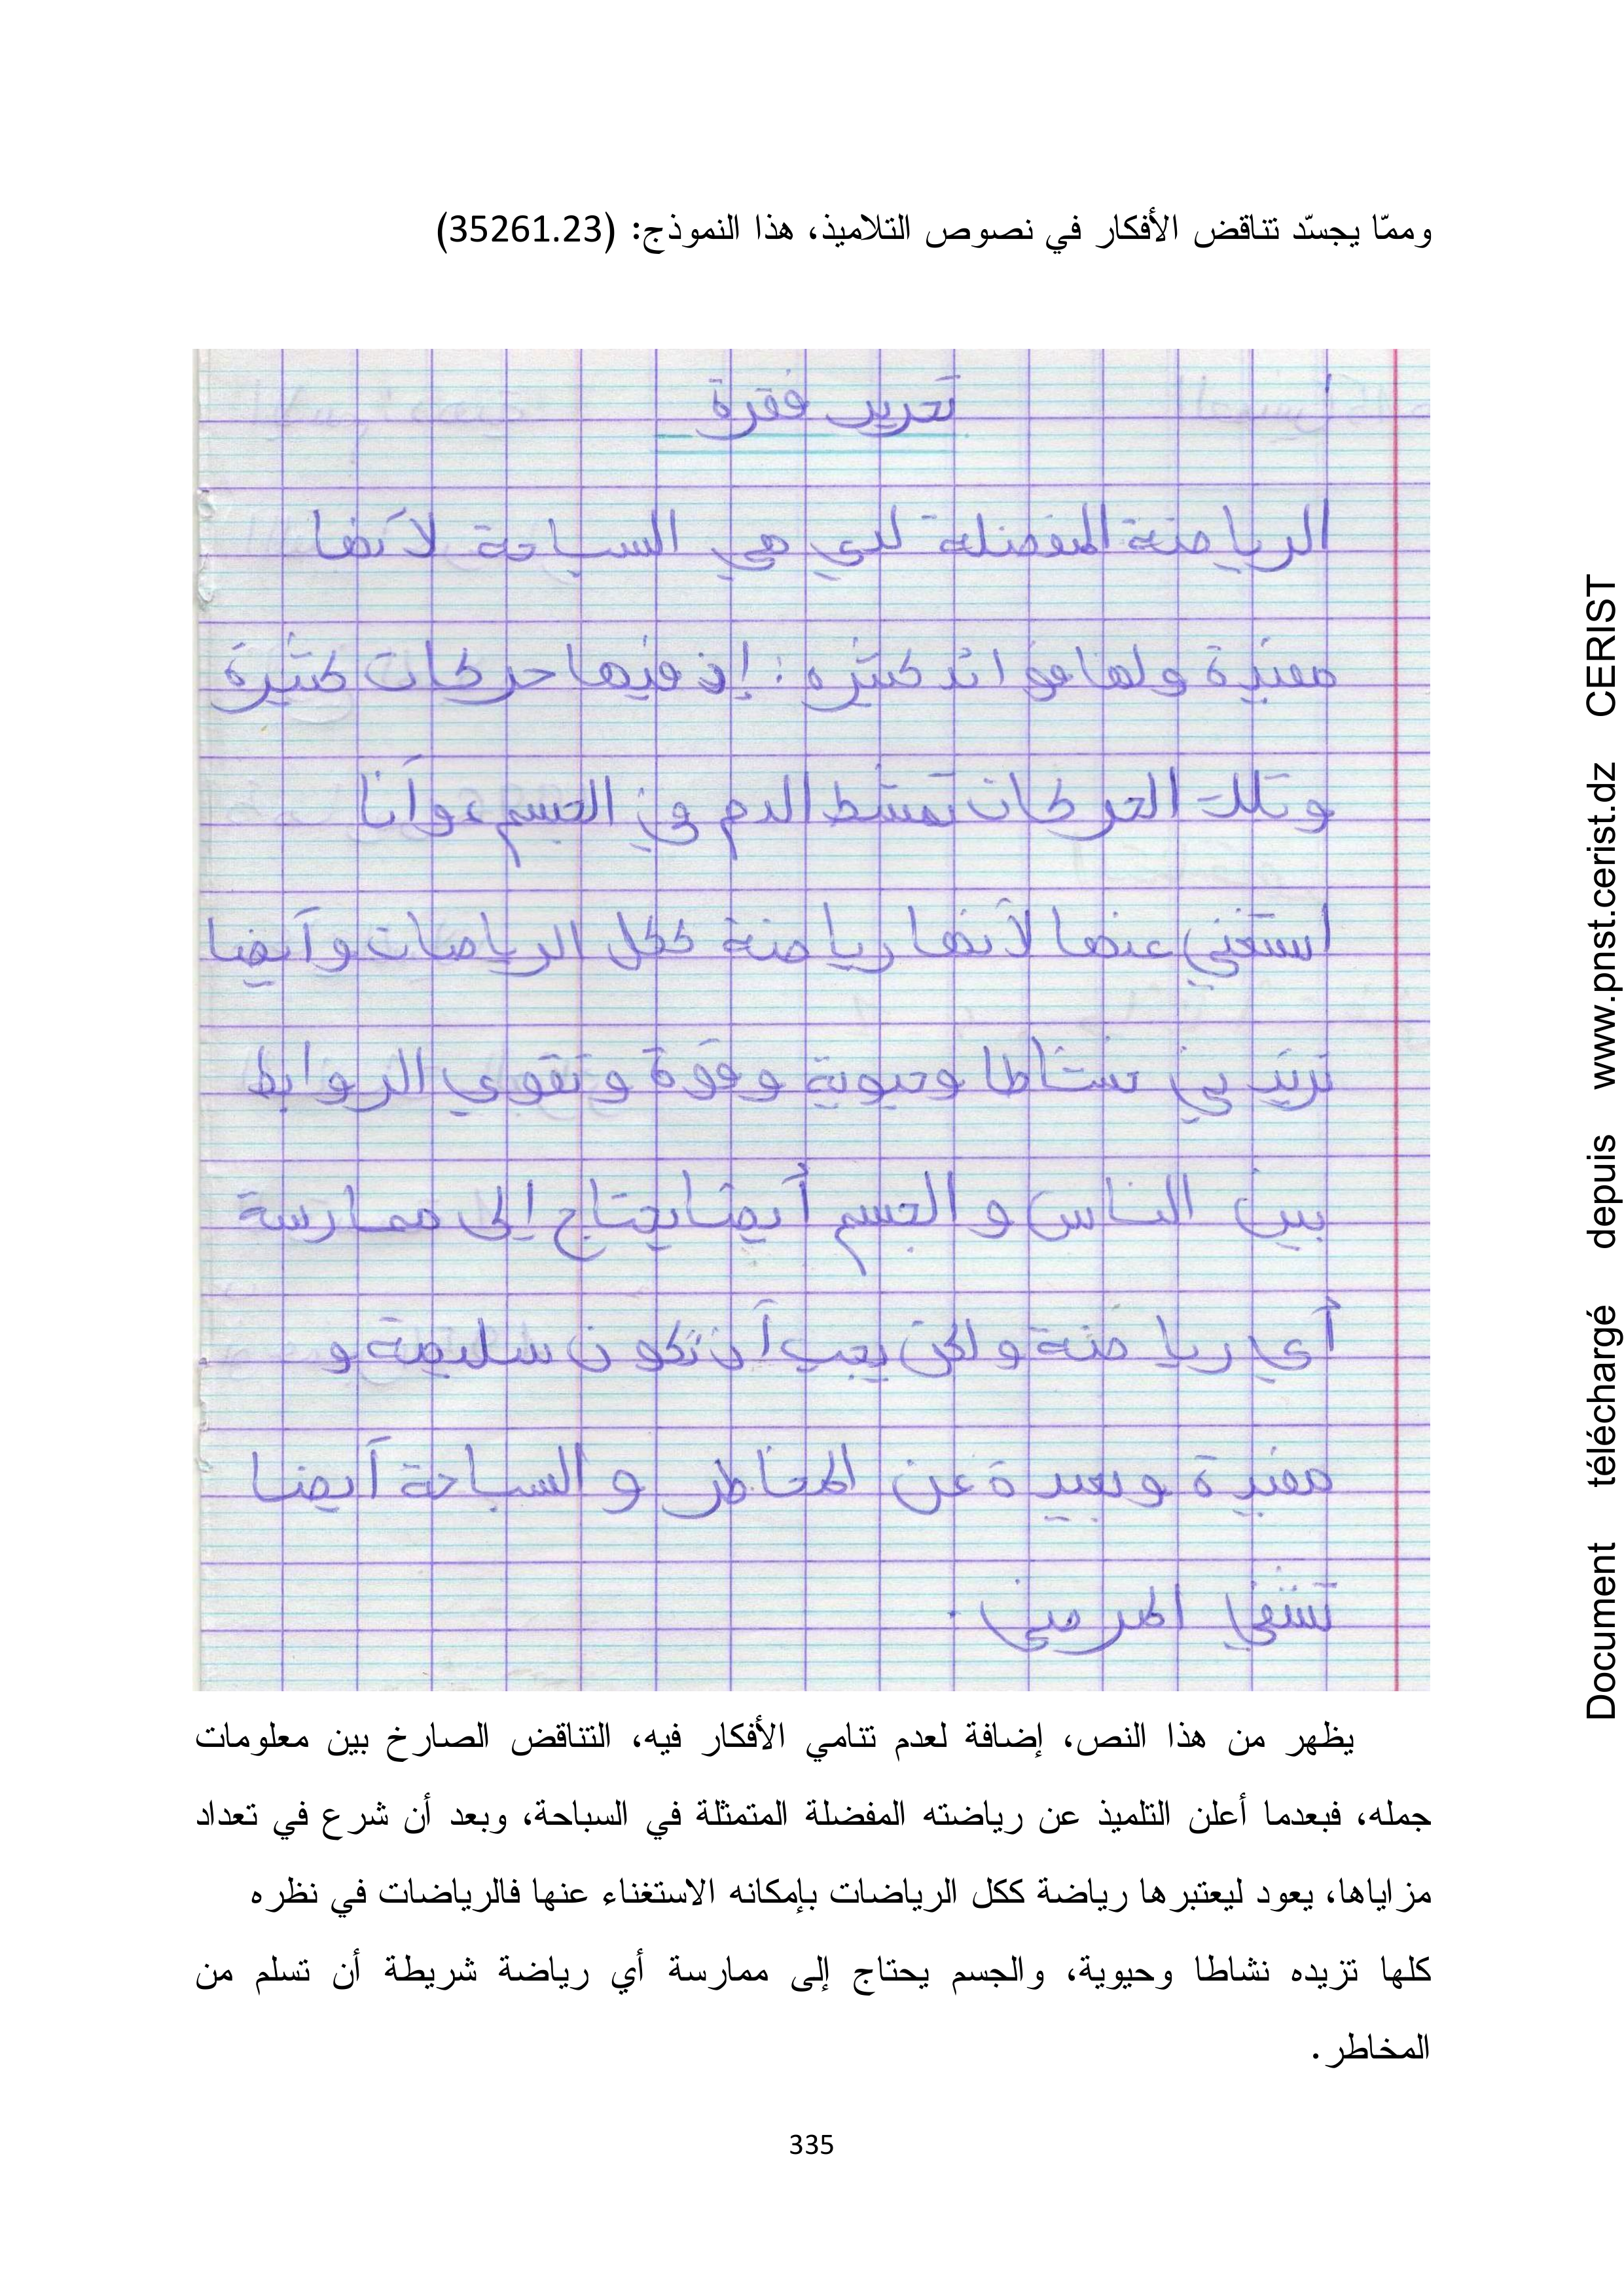 وممّا يجسّد تناقض الأفكار في نصوص التلاميذ، هذا النموذج: (35261.23)
تحرير فقرة
الرياضة المفضلة لدي هي السباحة لأنها
مفيدة ولها فوائد كثيره : إذ فيها حركات كثيرة
وتلك الحركات تنشط الدم في الجسم، وأنا
استغني عنها لأنها رياضة ككل الرياضات وأيضا
تزيد بي نشاطا وحيوية وقوة وتقوي الروابط
بين الناس و الجسم أيضا يحتاج إلى ممارسة
أي رياضة ولكن يجب أن تكون سليمة و
مفيدة وبعيدة عن المخاطر و السباحة أيضا
تشفي المرضى.
يظهر من هذا النص، إضافة لعدم تنامي الأفكار فيه، التناقض الصارخ بين معلومات
جمله، فبعدما أعلن التلميذ عن رياضته المفضلة المتمثلة في السباحة، وبعد أن شرع في تعداد
مزاياها، يعود ليعتبرها رياضة ككل الرياضات بإمكانه الاستغناء عنها فالرياضات في نظره
كلها تزيده نشاطا وحيوية، والجسم يحتاج إلى ممارسة أي رياضة شريطة أن تسلم من
المخاطر.
335
Document téléchargé depuis www.pnst.cerist.dz CERIST